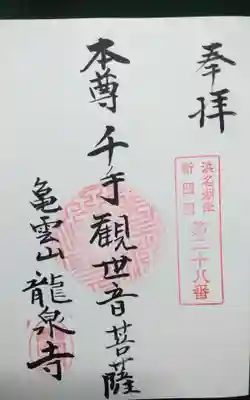 奉拝
浜名湖岸
新四国
第二十八番
本尊 千手観世音菩薩
亀雲山 龍泉寺